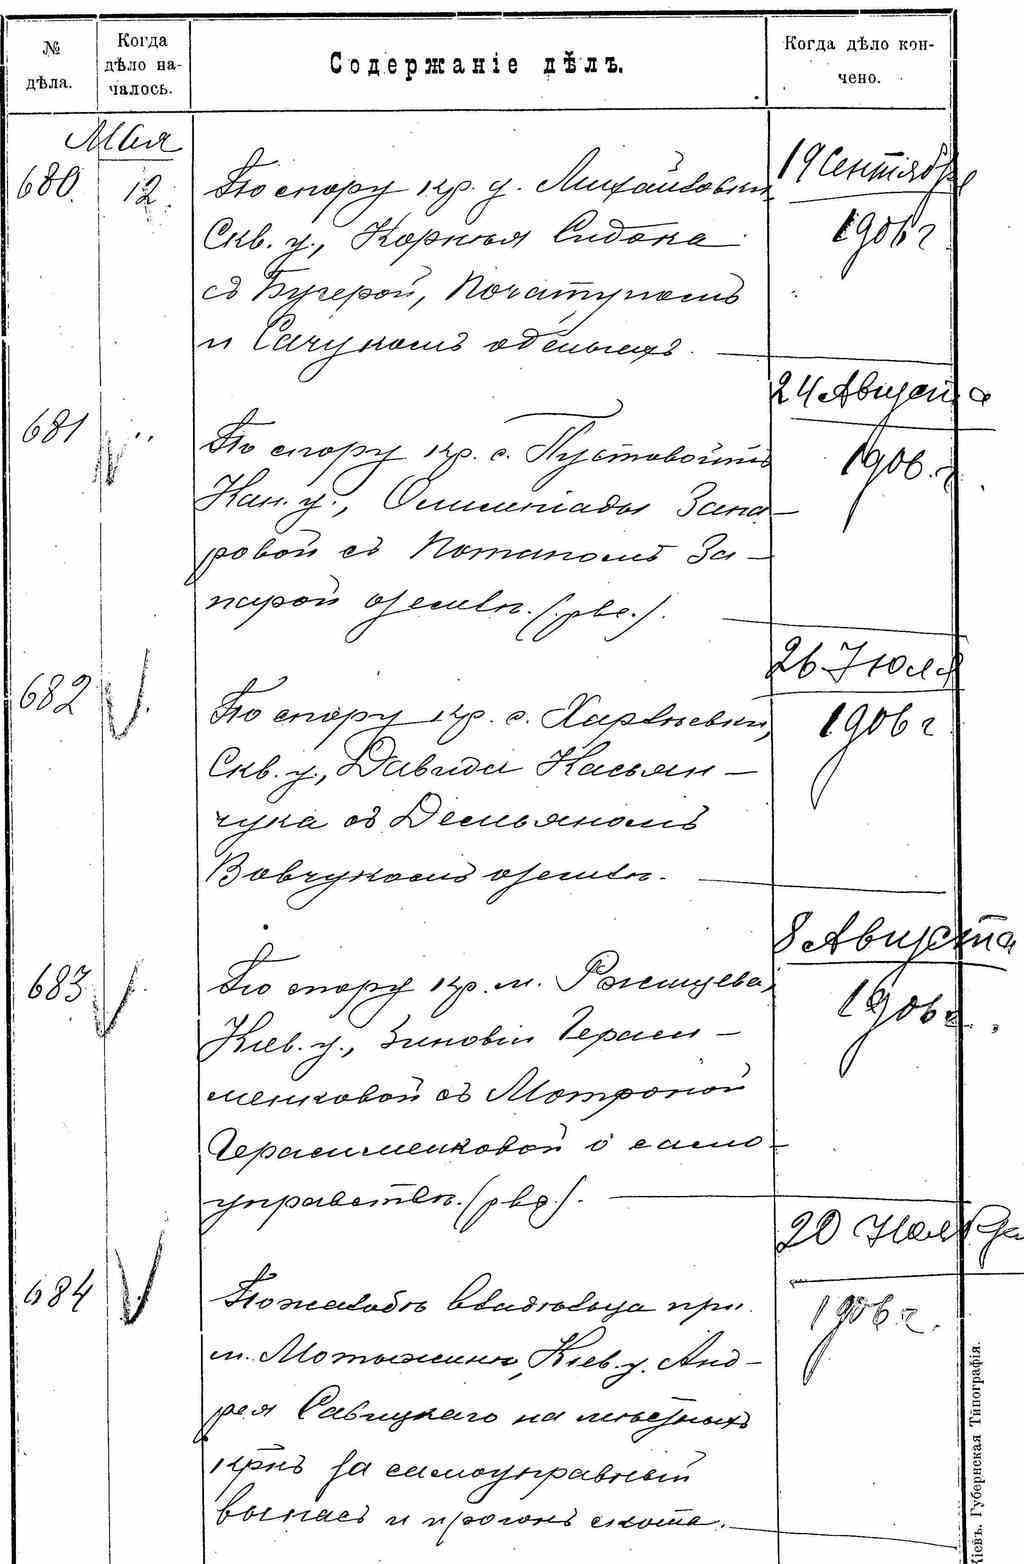 №
дѣла.
Когда
дѣло на-
чалось.
Содержаніе дѣлъ.
Когда дѣло кон-
чено.
Мая
680.
12
По спору кр. д. Михайловки,
Скв. у., Корнѣя Сидока
съ Бугерой, Початукомъ
и Сачукомъ о
19 Сентября
1906 г
681
По спору кр. с. Пустовойтъ
Кан. у., Олимпіады Запа-
ровой съ Потапомъ За-
парой о землѣ.
24 Августа
1906. г.
682
По спору кр. с. Харлѣевки,
Скв. у., Давида Касьян-
чука съ Демьяномъ
Вовчукомъ о землѣ.
26 Юля
1906 г
683
По спору кр. м. Ржищева,
Кіев. у., Зиновіи Гераси-
менковой съ Мотроной
Герасименковой о само-
управствѣ.
8 Августа
1906 г.
684
По жалобѣ владѣльца при
м. Мотыжинѣ, Кіев. у. Анд-
рея Савицкаго на мѣстныхъ
крнъ за самоуправный
выпасъ и прогонъ скота.
20 Ноября
1906. г.
Кіевъ. Губернская Типографія.